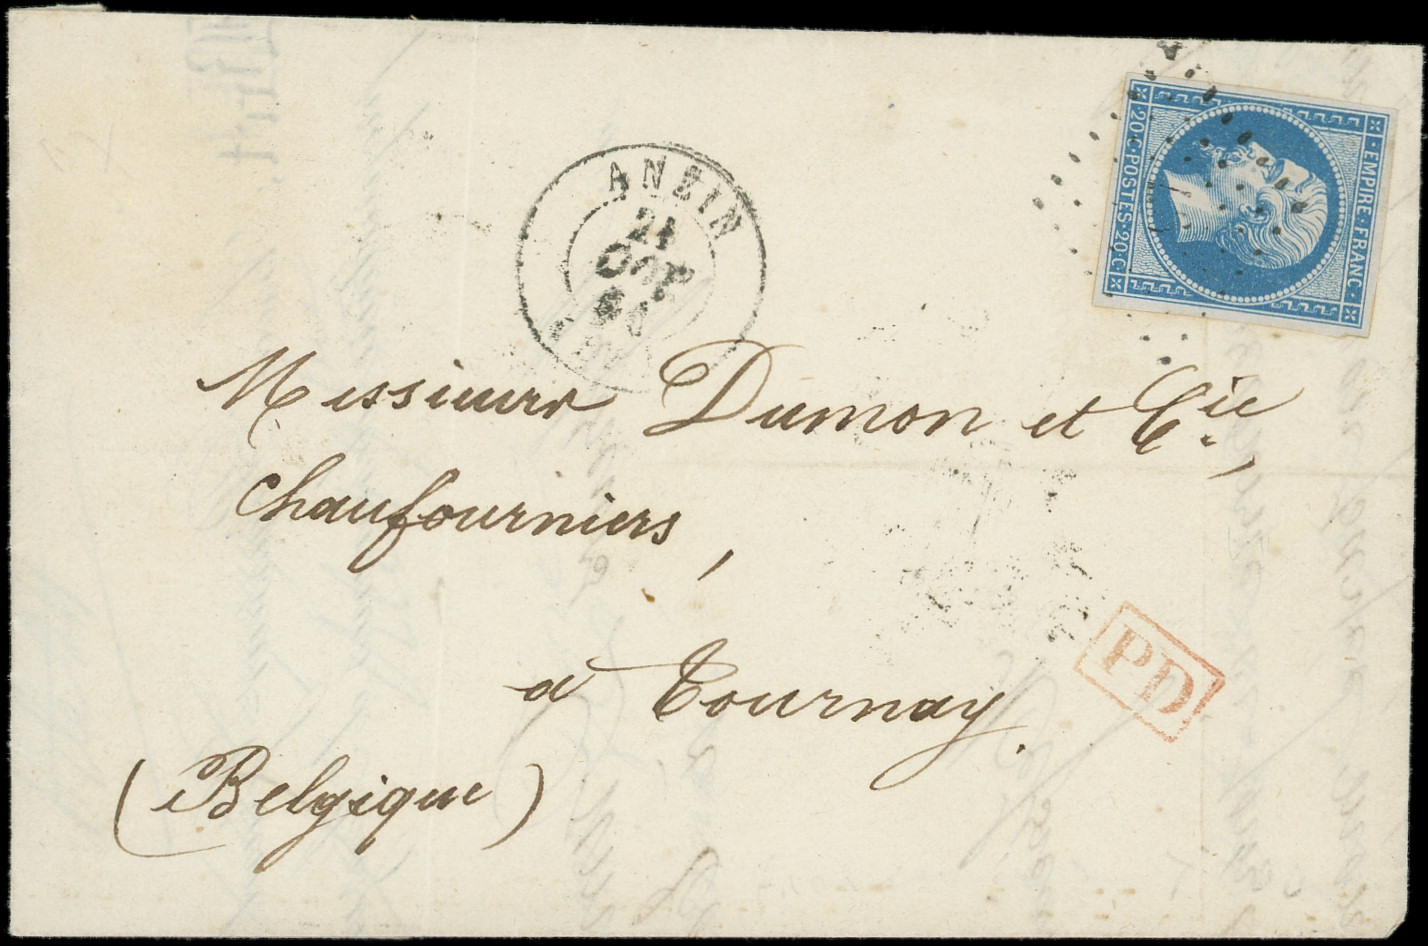 ANZIN
21
OCT
EMPIRE · FRANC ·
20 · C · POSTES · 20 · C
Messieurs Dumon et Cie,
chaufourniers,
à Tournay.
(Belgique)
PD